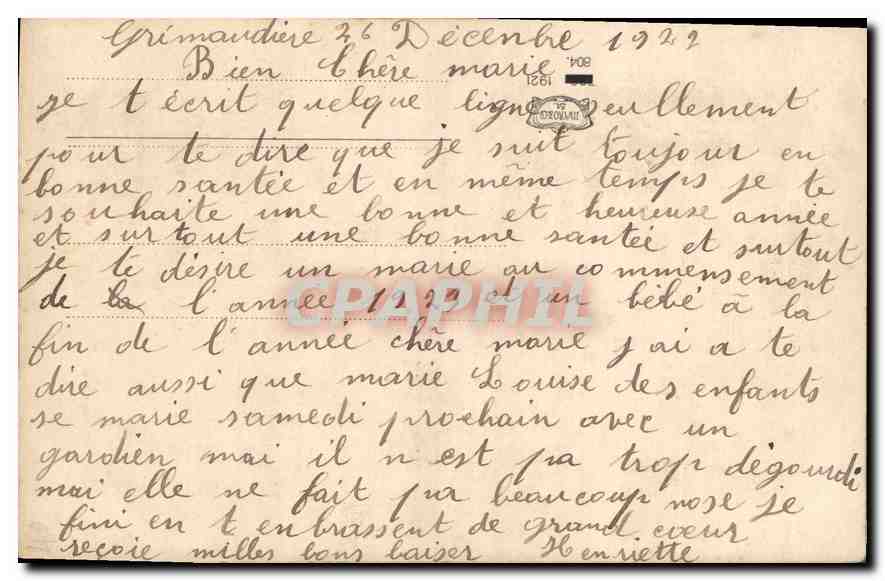 Grimaudière 26 Décenbre 1922
Bien Chère marie
804.
1921
je t écrit quelque ligne seullement
pour te dire que je suit toujour en
bonne santée et en même temps je te
souhaite une bonne et heureuse année
et surtout une bonne santée et surtout
je te désire un marie au commensement
de la l'année 1929 et un bébé à la
fin de l'année chère marie j ai a te
dire aussi que marie Louise des enfants
se marie samedi prochain avec un
gardien mai il n est pa trop dégourdi
mai elle ne fait pa beaucoup nose je
fini en t enbrassent de grand cœur
reçoie milles bons baiser Henriette
CPAPHIL